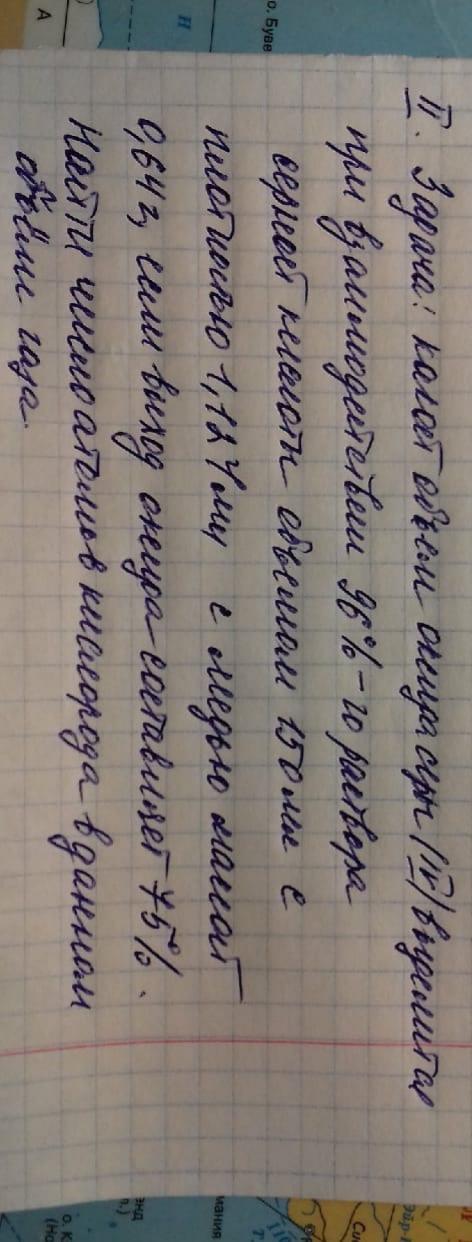 А
Н
о. Буве
II. Задача: какой объем оксида серы (IV) выделится
при взаимодействии 96%-го раствора
серной кислоты объемом 150 мл с
плотностью 1,12 г/мл с медью массой
0,64 г, если выход оксида составляет 75%.
Найти число атомов кислорода в данном
объёме газа.
мания